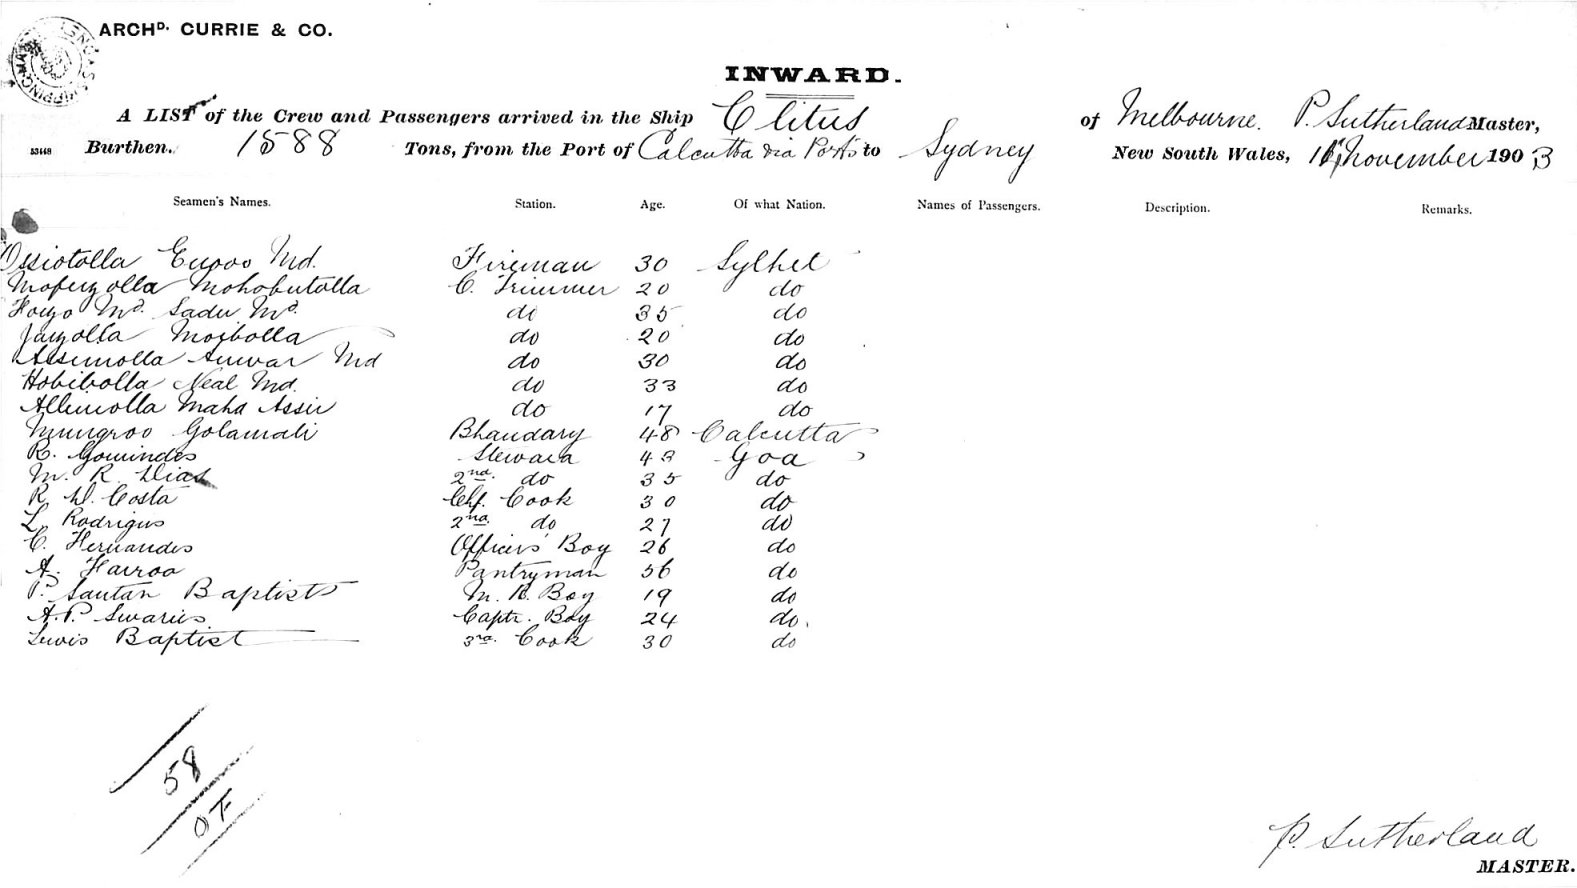 ARCHD. CURRIE & CO.
INWARD.
A LIST of the Crew and Passengers arrived in the Ship Clitus of Melbourne. P. Sutherland Master,
53448 Burthen. 1588 Tons, from the Port of Calcutta via Ports to Sydney New South Wales, November 1903
Seamen's Names. Station. Age. Of what Nation. Names of Passengers. Description. Remarks.
Ossiotolla Md. Fireman 30 Sylhet
Mofuzolla Mohobutolla C. Trimmer 20 do
Md. Sadu Md. do 35 do
Jauzolla Moibolla do 20 do
Assimolla Anwar Md do 30 do
Hobibolla Neal Md. do 33 do
Allimolla Maha Assir do 17 do
Mungroo Golamali Bhandary 48 Calcutta
R. Gouindes Steward 43 Goa
M. R. Dias 2nd. do 35 do
R D. Costa Chf. Cook 30 do
L Rodrigus 2nd. do 27 do
C. Fernandes Officers' Boy 26 do
A. Farroo Pantryman 56 do
P. Santan Baptist M. R. Boy 19 do
A. P. Swaries Captn. Boy 24 do.
Lewis Baptist 3rd. Cook 30 do
58
P. Sutherland
MASTER.